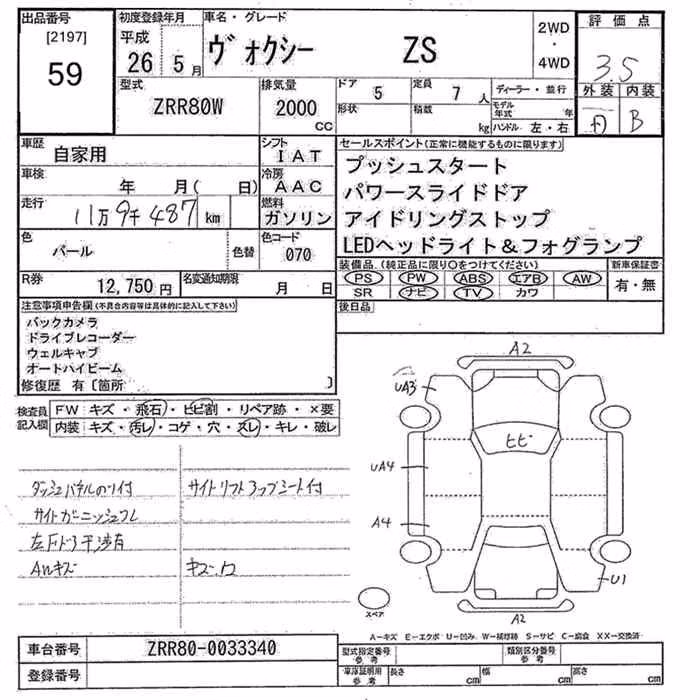 出品番号 [2197] 59
初度登録年月 平成 26年 5月
車名・グレード ヴォクシー ZS
2WD・4WD
評価点 3.5
外装 内装 B
型式 ZRR80W
排気量 2000 CC
ドア 5 定員 7 人
形状 積載 kg
ディーラー・並行
モデル年式 年
ハンドル 左・右
車歴 自家用
シフト IAT
車検 年 月( 日)
冷房 AAC
走行 11万9千487 km
燃料 ガソリン
色 パール 色替
色コード 070
R券 12,750円
名変通知期限 月 日
セールスポイント(正常に機能するものに限ります)
プッシュスタート
パワースライドドア
アイドリングストップ
LEDヘッドライト&フォグランプ
装備品(純正品に限り○をつけてください) 新車保証書
PS PW ABS エアB AW 有・無
SR ナビ TV カワ
後日品
注意事項申告欄(不具合内容等は具体的に記入して下さい)
バックカメラ
ドライブレコーダー
ウェルキャブ
オートハイビーム
修復歴 有〔箇所 〕
検査員記入欄
FW キズ・飛石・ヒビ割・リペア跡・×要
内装 キズ・汚レ・コゲ・穴・スレ・キレ・破レ
ダッシュパネルのり付 サイドリフトアップシート付
サイドガーニッシュスレ
左Fドア干渉有
AWキズ
A2
UA3
ヒビ
UA4
A4
U1
A2
スペア
A-キズ E-エクボ U-凹み W-補修跡 S-サビ C-腐食 XX-交換済
車台番号 ZRR80-0033340
登録番号
型式指定番号 参考 類別区分番号 参考
車庫証明用 参考 長さ cm 幅 cm 高さ cm